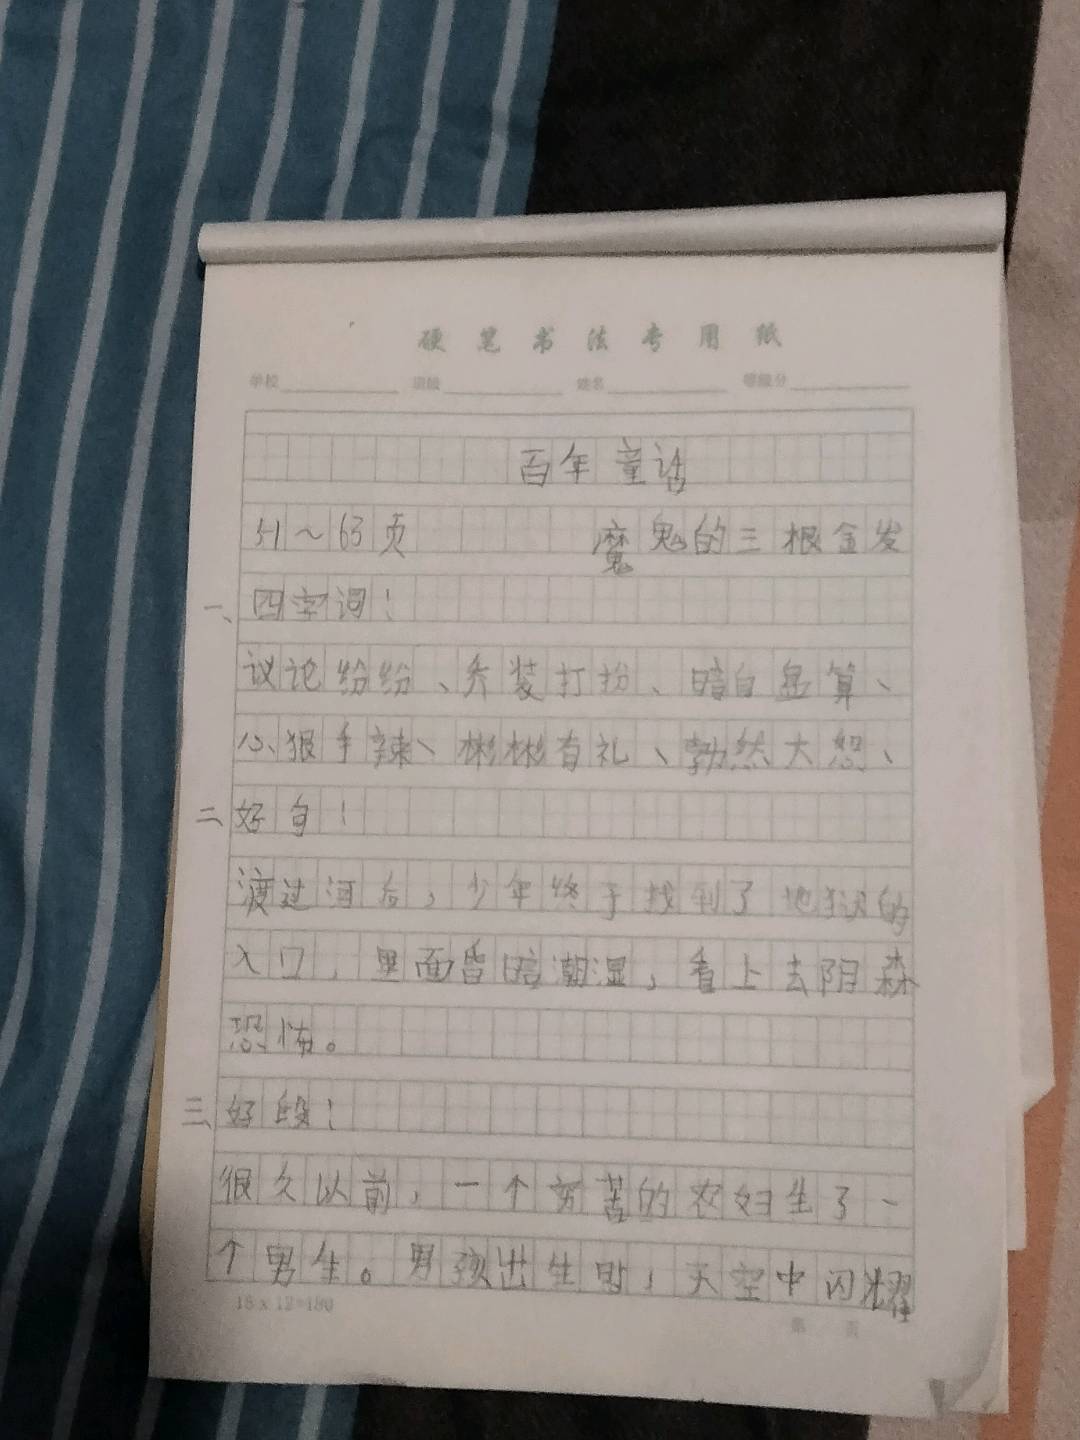 硬笔书法专用纸
学校 班级 姓名 等级分
百年童话
51～63页 魔鬼的三根金发
一、四字词！
议论纷纷、乔装打扮、暗自盘算、
心狠手辣、彬彬有礼、勃然大怒、
二、好句！
渡过河后，少年终于找到了地狱的
入口，里面昏暗潮湿，看上去阴森
恐怖。
三、好段！
很久以前，一个穷苦的农妇生了一
个男生。男孩出生时，天空中闪耀
15x12=180
第 页